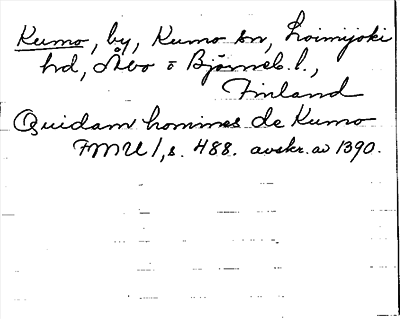 Kumo, by, Kumo sn, Loimijoki
hd, Åbo o Björneb. l.,
Finland
Quidam homines de Kumo
FMU 1, s. 488. avskr. av 1390.